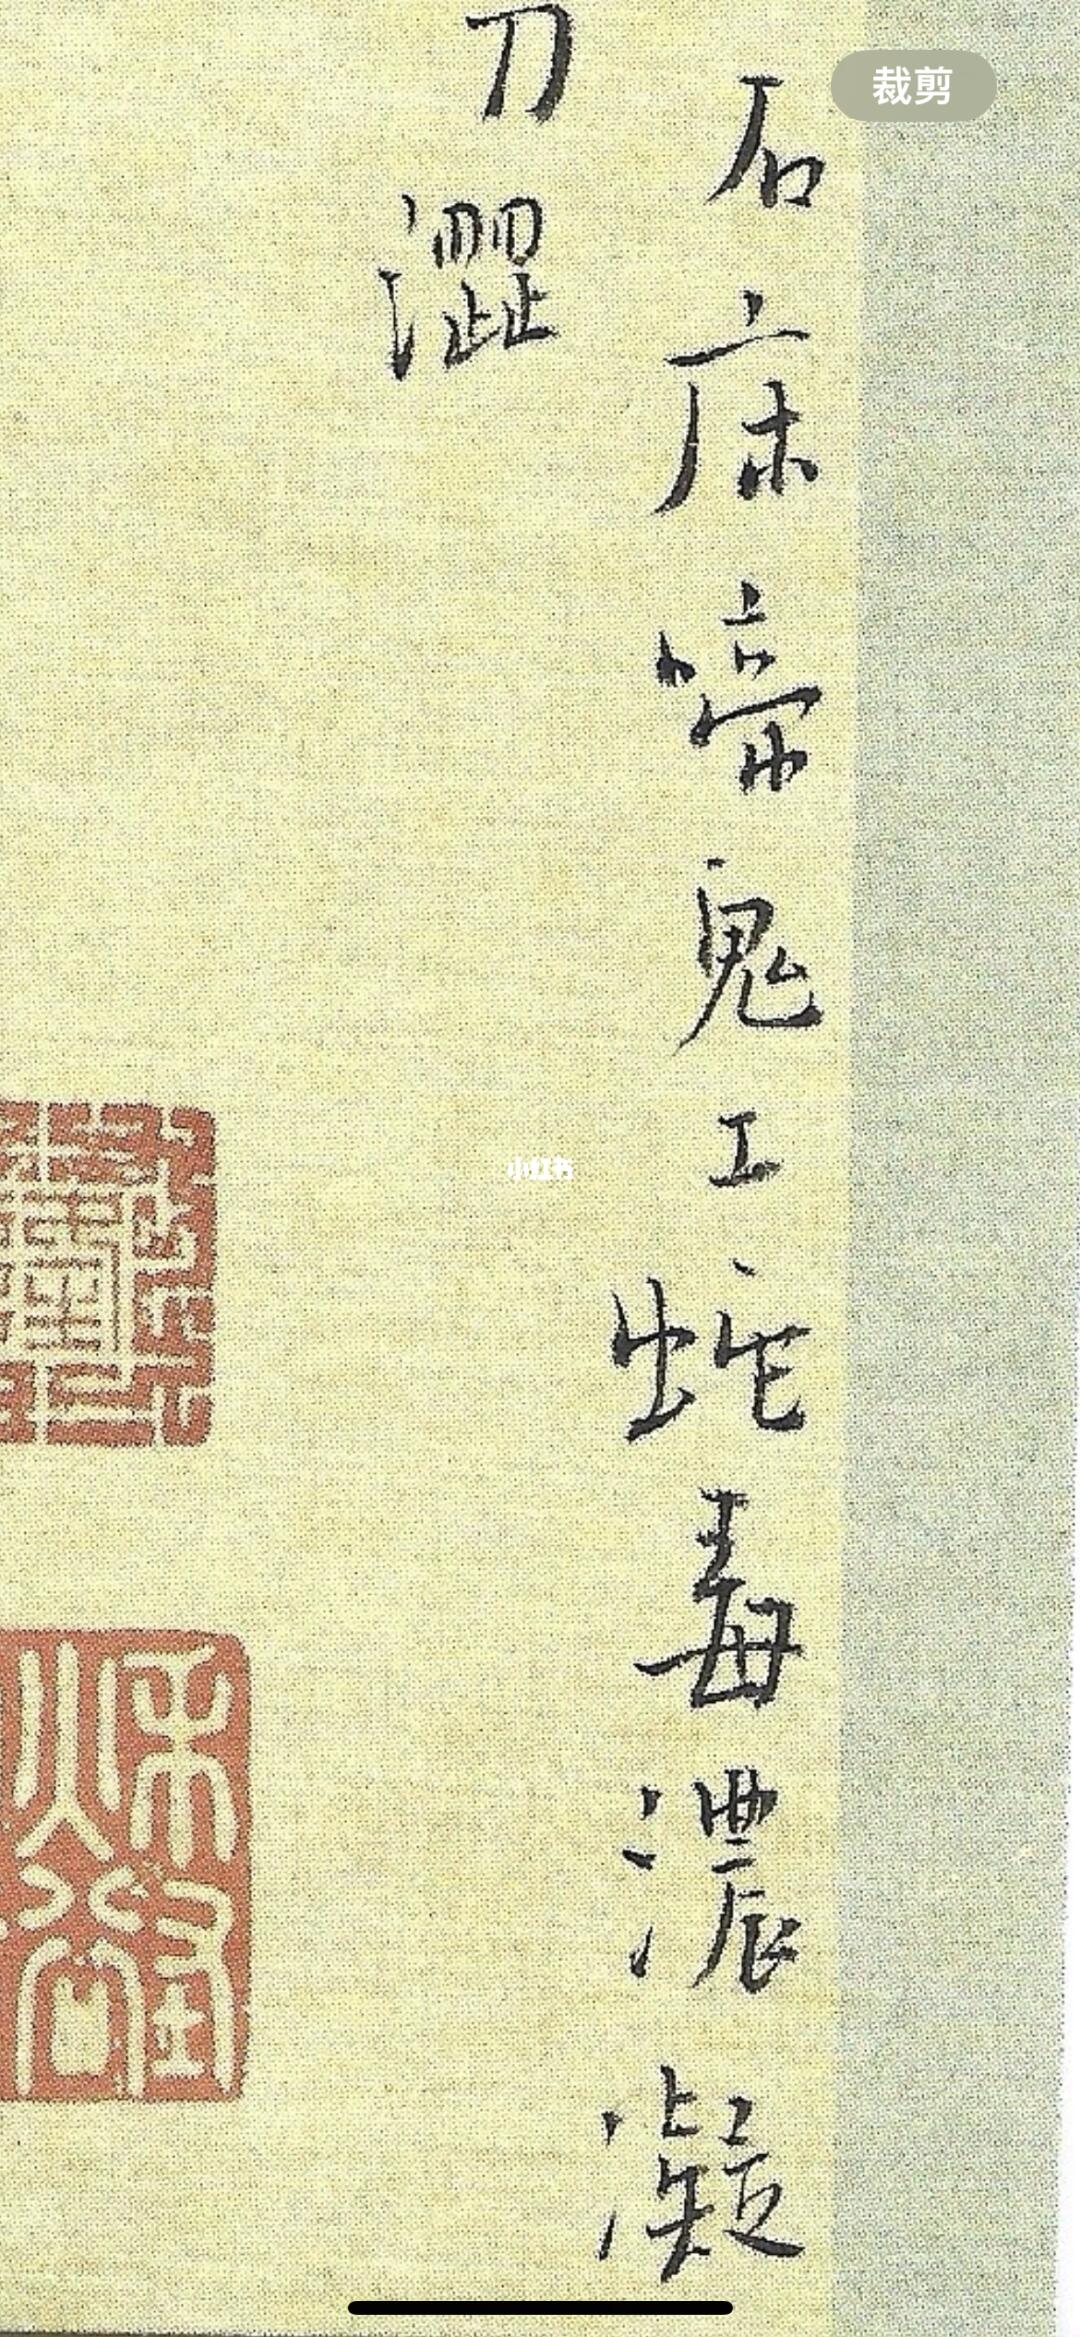 裁剪
石床啼鬼工蛇毒濃凝
刀澀
小红书